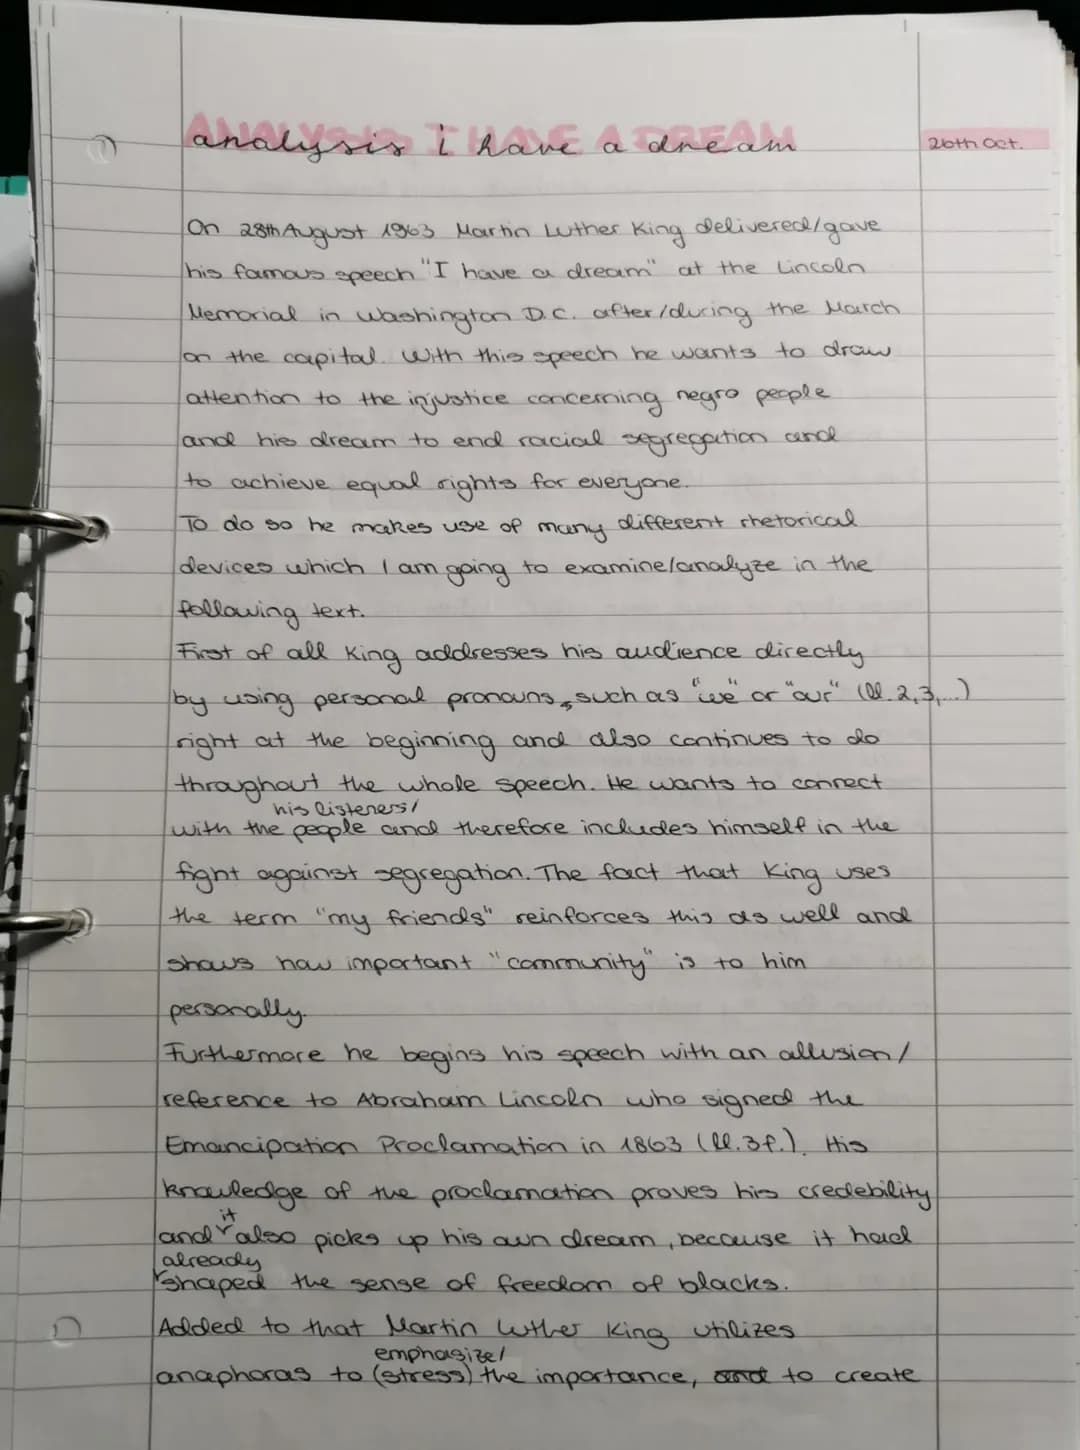 ANALYSIS I HAVE A DREAM
analysis i have a dream
26th Oct.
On 28th August 1963 Martin Luther King delivered/gave
his famous speech "I have a dream" at the Lincoln
Memorial in Washington D.C. after/during the March
on the capital. With this speech he wants to draw
attention to the injustice concerning negro people
and his dream to end racial segregation and
to achieve equal rights for everyone.
To do so he makes use of many different rhetorical
devices which I am going to examine/analyze in the
following text.
First of all King addresses his audience directly
by using personal pronouns, such as "we" or "our" (ll. 2,3,...)
right at the beginning and also continues to do
throughout the whole speech. He wants to connect
his listeners/
with the people and therefore includes himself in the
fight against segregation. The fact that King uses
the term "my friends" reinforces this as well and
shows how important "community" is to him
personally.
Furthermore he begins his speech with an allusion/
reference to Abraham Lincoln who signed the
Emancipation Proclamation in 1863 (ll. 3f.). His
knowledge of the proclamation proves his credebility
it
and also picks up his own dream, because it had
already
shaped the sense of freedom of blacks.
Added to that Martin Luther King utilizes
emphasize/
anaphoras to (stress) the importance, and to create